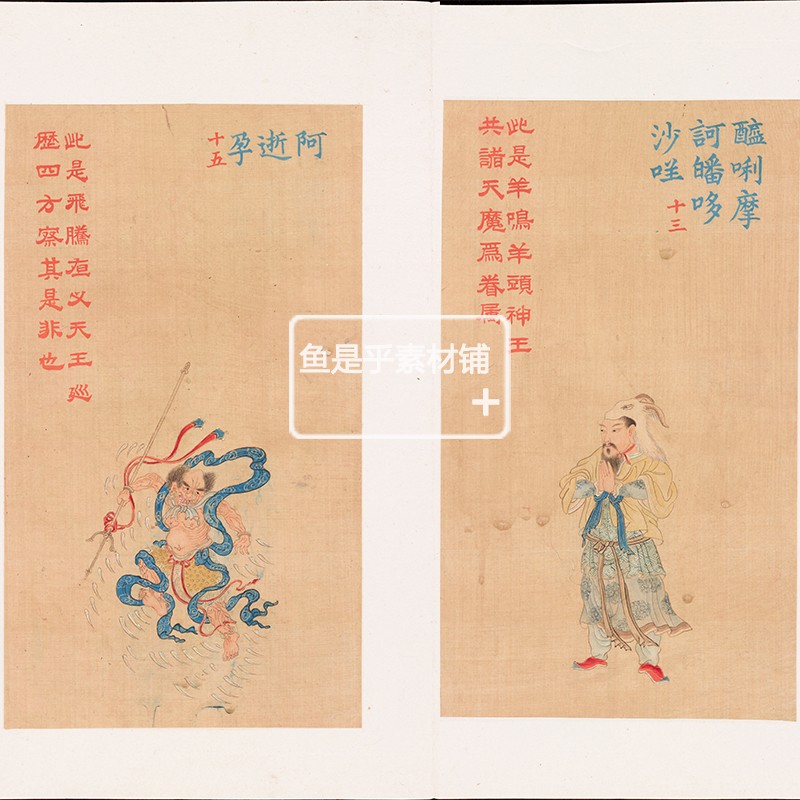 醯唎摩
訶皤哆
沙咩
十三
此是羊鳴羊頭神王
共諸天魔爲眷属
阿逝孕
十五
此是飛騰夜义天王廵
歷四方察其是非也
鱼是乎素材铺
+